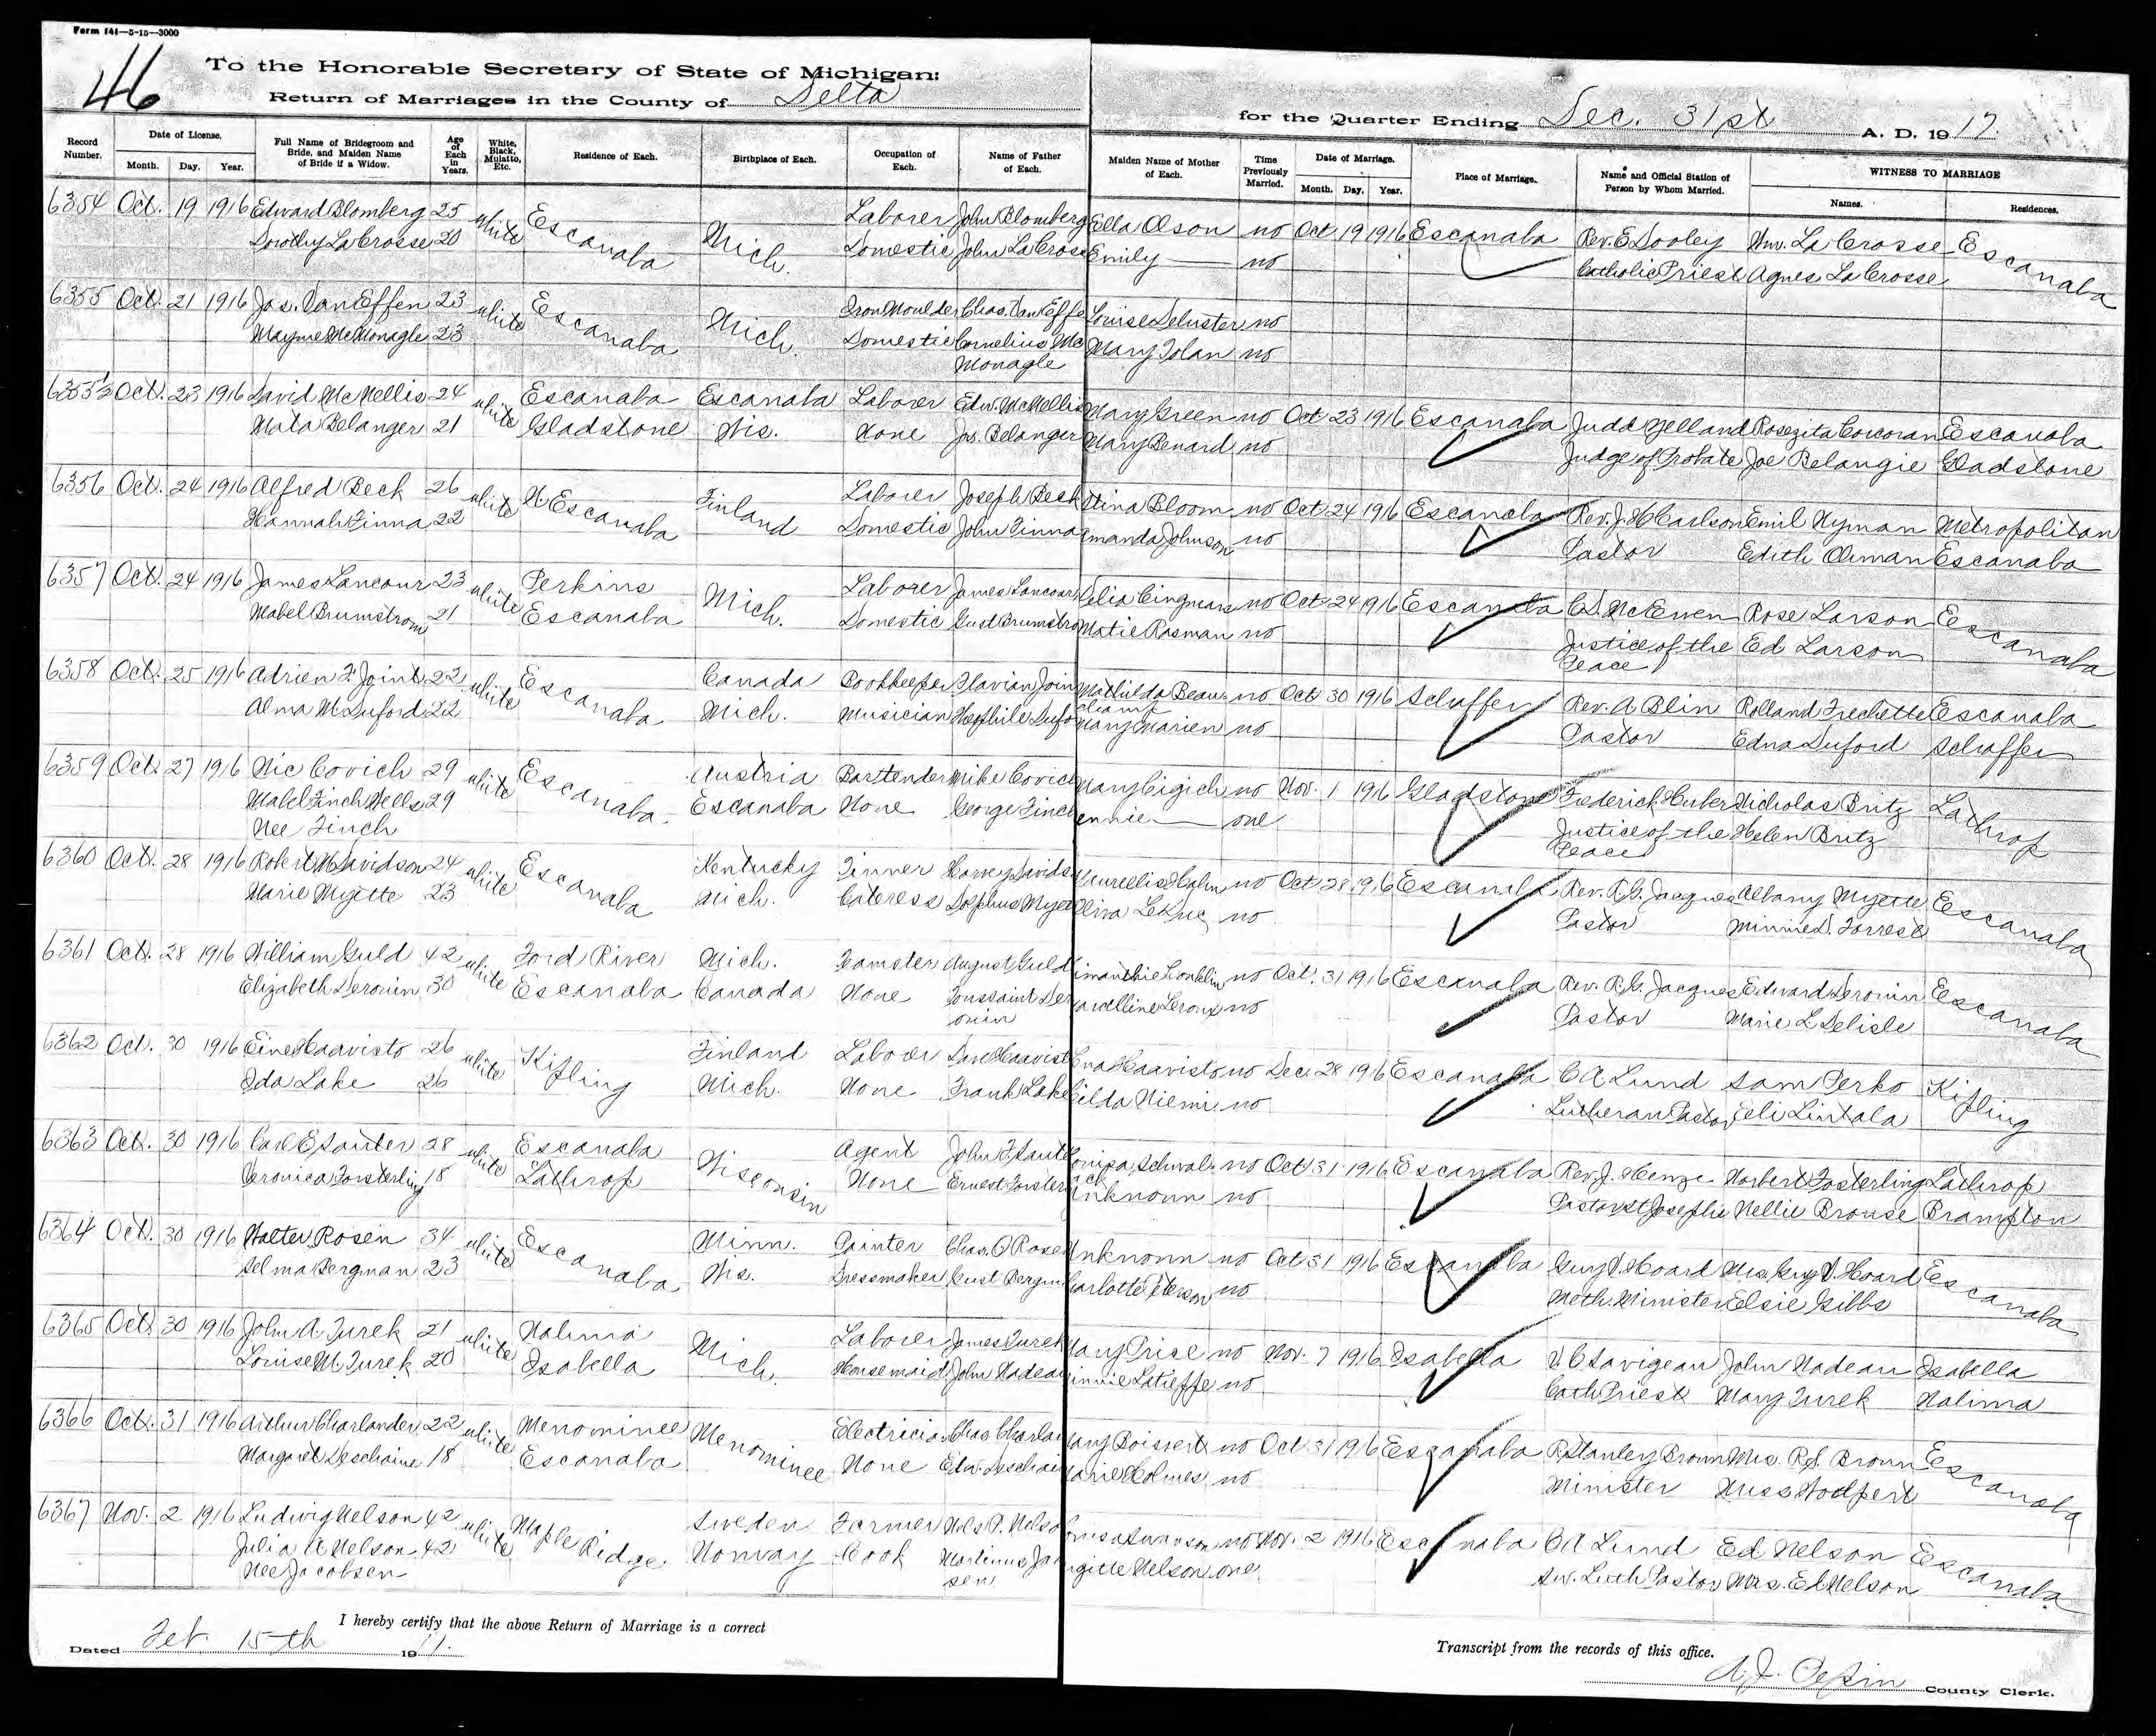 Form 141—5-15—3000
46
To the Honorable Secretary of State of Michigan:
Return of Marriages in the County of Delta
for the Quarter Ending Dec. 31st A. D. 1917
Record Number. Date of License. Month. Day. Year. Full Name of Bridegroom and Bride, and Maiden Name of Bride if a Widow. Age of Each in Years. White, Black, Mulatto, Etc. Residence of Each. Birthplace of Each. Occupation of Each. Name of Father of Each. Maiden Name of Mother of Each. Time Previously Married. Date of Marriage. Month. Day. Year. Place of Marriage. Name and Official Station of Person by Whom Married. WITNESS TO MARRIAGE Names. Residences.
6354 Oct. 19 1916 Edward Blomberg 25 white Escanaba Mich. Laborer John Blomberg Ella Olson no Oct 19 1916 Escanaba Rev. E Dooley Wm. La Crosse Escanaba
Dorothy La Crosse 20 Domestic John La Cross Emily no Catholic Priest Agnes La Crosse
6355 Oct. 21 1916 Jos. Van Effen 23 white Escanaba Mich. Iron Moulder Chas. Van Effe Louise Deluster no
Mayme McMonagle 23 Domestic Cornelius Mc Mary Tolan no
Monagle
6355½ Oct. 23 1916 David McNellis 24 white Escanaba Escanaba Laborer Edw. McNellis Mary Green no Oct 23 1916 Escanaba Judd Yelland Rosezita Corcoran Escanaba
Mata Belanger 21 Gladstone Wis. None Jos. Belanger Mary Benard no Judge of Probate Joe Belangie Gladstone
6356 Oct. 24 1916 Alfred Beck 26 white N. Escanaba Finland Laborer Joseph Beck Stina Bloom no Oct 24 1916 Escanaba Rev. J. H Carlson Emil Nyman Metropolitan
Hannah Finna 22 Domestic John Finna manda Johnson no Pastor Edith Ohman Escanaba
6357 Oct. 24 1916 James Lancour 23 white Perkins Mich. Laborer James Lancour Delia no Oct 24 1916 Escanaba C.D. McEwen Rose Larson Escanaba
Mabel Brumstrom 21 Escanaba Domestic Gust Brumstro Matie Rasman no Justice of the Ed Larson
Peace
6358 Oct. 25 1916 Adrien F. Joint 22 white Escanaba Canada Bookkeeper Flavian Join Mathilda Beau- no Oct 30 1916 Schaffer Rev. A Blin Rolland Frechette Escanaba
Alma M. Duford 22 Mich. Musician Theophile Dufo champ Mary Marien no Pastor Edna Duford Schaffer
6359 Oct. 27 1916 Nic Covich 29 white Escanaba Austria Bartender Mike Covich Mary Cigich no Nov. 1 1916 Gladstone Frederick Huber Nicholas Britz Lathrop
Mabel Finch Wells 29 Escanaba None George Finch ennie one Justice of the Helen Britz
Nee Finch Peace
6360 Oct. 28 1916 Robert M Davidson 24 white Escanaba Kentucky Tinner Harvey Davids Hahn no Oct 28 1916 Escanaba Rev. R. G. Jacques Albany Myette Escanaba
Marie Myette 23 Mich. Cateress Dolphus Myet Oliva LeDuc no Pastor Minnie D. Forrest
6361 Oct. 28 1916 William Guld 42 white Ford River Mich. Teamster August Guld Conklin no Oct. 31 1916 Escanaba Rev. R. G. Jacques Edward Derouin Escanaba
Elizabeth Derouin 30 Escanaba Canada None Toussaint Der arcelline Leroux no Pastor Marie L Delisle
ouin
6362 Oct. 30 1916 Eino Haavisto 26 white Kipling Finland Laborer Dave Haavist Eva Haavisto no Dec. 28 1916 Escanaba C A Lund Sam Perko Kipling
Ida Lake 26 Mich. None Frank Lake Hilda Niemi no Lutheran Pastor Eeli Lintala
6363 Oct. 30 1916 Carl E Sauter 28 white Escanaba Wisconsin Agent John F. Saute onisa Schwal- no Oct 31 1916 Escanaba Rev. J. Henze Norbert Fosterling Lathrop
Veronica Forsterling 18 Lathrop None Ernest Forster unknown no Pastor St Josephs Nellie Brouse Brampton
6364 Oct. 30 1916 Walter Rosen 34 white Escanaba Minn. Painter Chas. O Rose Unknown no Oct 31 1916 Escanaba Guy V. Hoard Mrs. Guy V. Hoard Escanaba
Selma Bergman 23 Wis. Dressmaker Gust Bergm Carlotte Peterson no Meth. Minister Elsie Gibbs
6365 Oct. 30 1916 John A. Turek 21 white Nahma Mich. Laborer James Turek Mary Price no Nov. 7 1916 Isabella V. C Savigeau John Nadeau Isabella
Louise M. Turek 20 Isabella Housemaid John Nadeau innie Latieffe no Cath Priest Mary Turek Nahma
6366 Oct. 31 1916 Arthur Charlander 22 white Menominee Menominee Electrician Chas Charlan ary Boissert no Oct 31 1916 Escanaba R Stanley Brown Mrs. R. S. Brown Escanaba
Margaret Deschaine 18 Escanaba None Edw. Deschai Marie Holmes no Minister Miss Woolpert
6367 Nov. 2 1916 Ludwig Nelson 42 white Maple Ridge Sweden Farmer Nels P. Nelso ouisa Swanson no Nov. 2 1916 Escanaba C A Lund Ed Nelson Escanaba
Julia A Nelson 42 Norway Cook Martinus Ja rgitte Nelson one Sw. Luth Pastor Mrs. Ed Nelson
Nee Jacobsen sen
I hereby certify that the above Return of Marriage is a correct
Transcript from the records of this office.
Dated Feb. 15th 1911.
A. J. Pepin County Clerk.